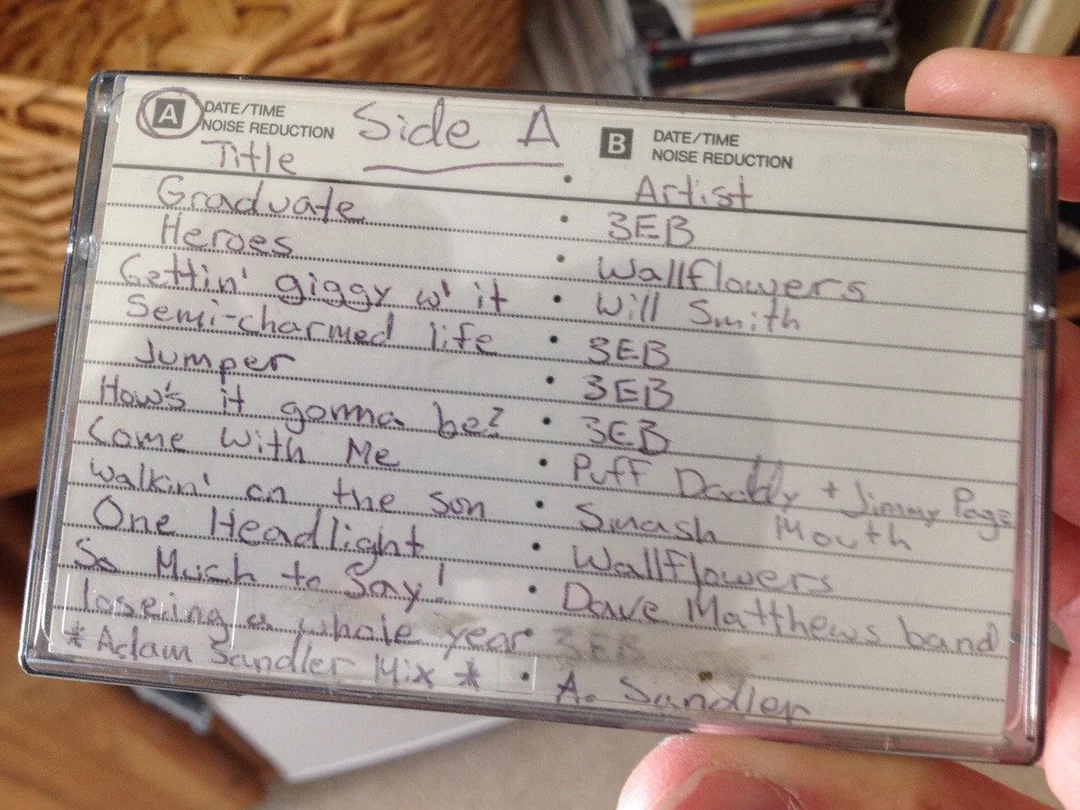 A DATE/TIME NOISE REDUCTION Side A B DATE/TIME NOISE REDUCTION
Title Artist
Graduate • 3EB
Heroes • Wallflowers
Gettin' giggy w' it • Will Smith
Semi-charmed life • 3EB
Jumper • 3EB
How's it gonna be? • 3EB
Come With Me • Puff Daddy + Jimmy Page
Walkin' on the son • Smash Mouth
One Headlight • Wallflowers
So Much to Say! • Dave Matthews band
loseing a whole year 3EB
* Adam Sandler Mix * • A. Sandler